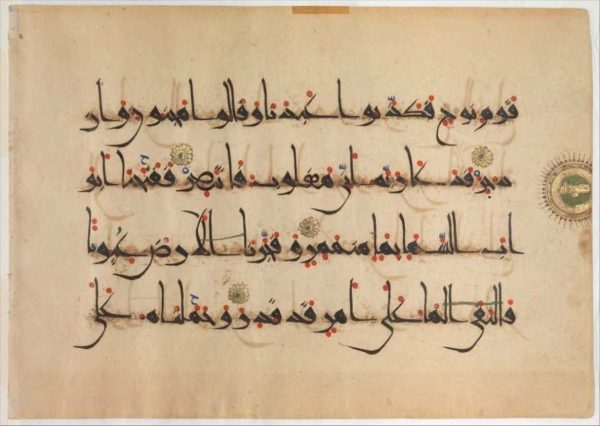 قوم نوح فكذبوا عبدنا وقالوا مجنون وازد
جر فدعا ربه انى مغلوب فانتصر ففتحنا ابو
اب السما بما منهمر وفجرنا الارض عيونا
فالتقى الما على امر قد قدر وحملناه على